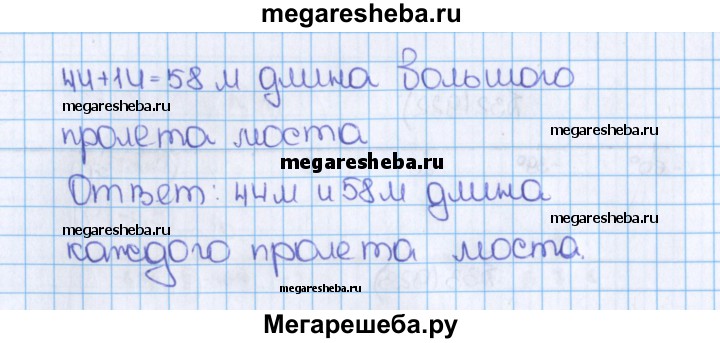 megaresheba.ru
44+14=58 м длина большого
megaresheba.ru megaresheba.ru
пролета моста
megaresheba.ru
Ответ: 44м и 58м длина
megaresheba.ru megaresheba.ru
каждого пролета моста.
megaresheba.ru
Мегарешеба.ру